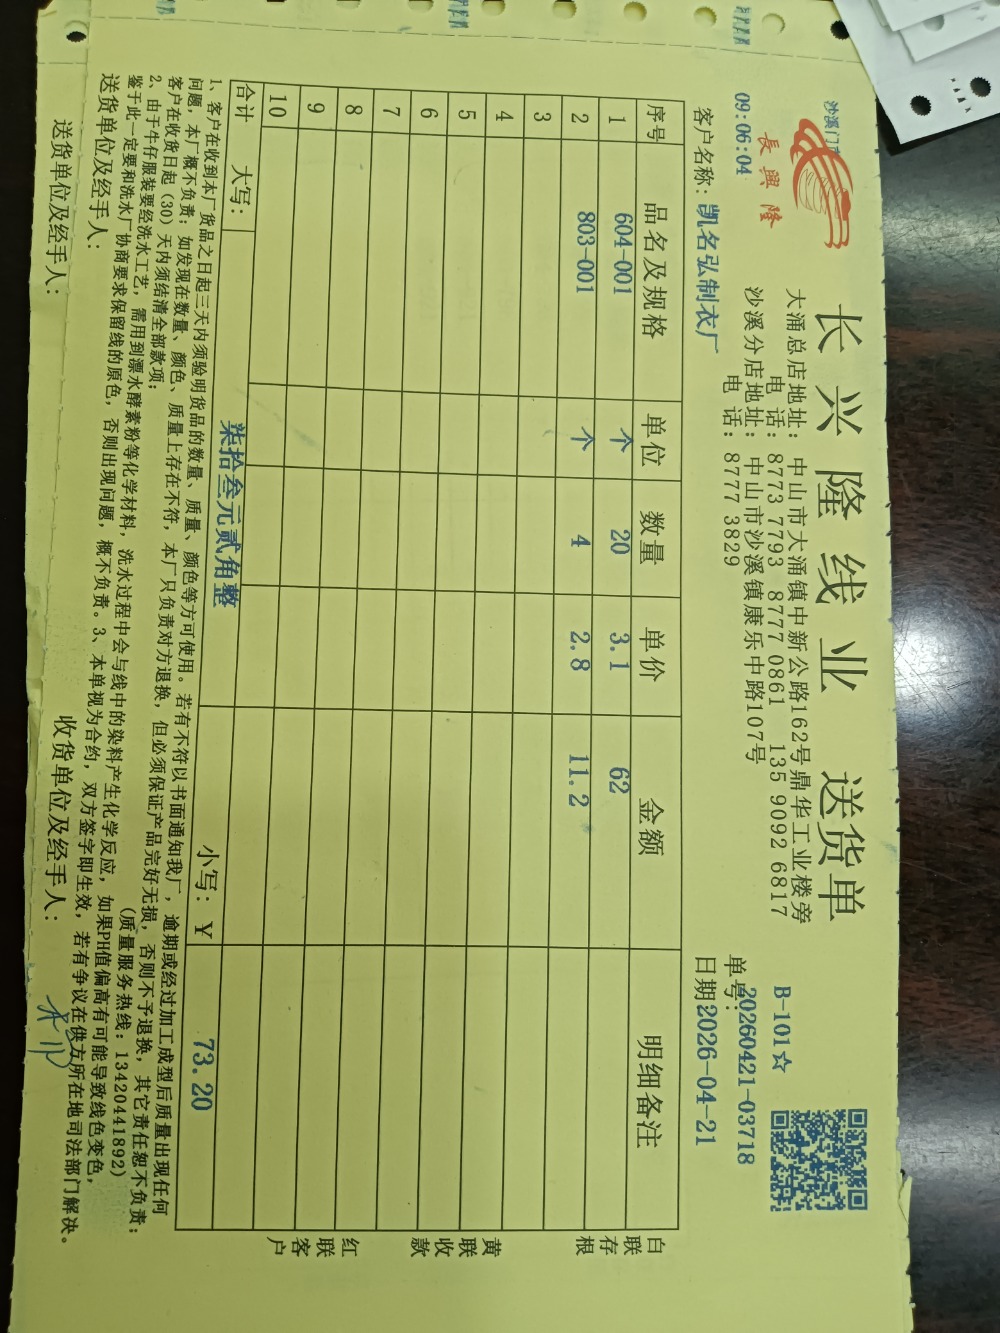 沙溪门市
長興隆
09:06:04
长兴隆线业 送货单
大涌总店地址: 中山市大涌镇中新公路162号鼎华工业楼旁
电 话: 8773 7793 8777 0861 135 9092 6817
沙溪分店地址: 中山市沙溪镇康乐中路107号
电 话: 8777 3829
B-101☆
单号: 20260421-03718
客户名称: 凯名弘制衣厂
日期: 2026-04-21
序号 品名及规格 单位 数量 单价 金额 明细备注
1 604-001 个 20 3.1 62
2 803-001 个 4 2.8 11.2
3
4
5
6
7
8
9
10
合计 大写: 柒拾叁元贰角整 小写: Y 73.20
白联存根
黄联收款
红联客户
1、客户在收到本厂货品之日起三天内须验明货品的数量、质量、颜色等方可使用。若有不符以书面通知我厂，逾期或经过加工成型后质量出现任何
问题，本厂概不负责；如发现在数量、颜色、质量上存在不符，本厂只负责对方退换，但必须保证产品完好无损，否则不予退换，其它责任恕不负责；
客户在收货日起（30）天内须结清全部款项； (质量服务热线: 13420441892)
2、由于牛仔服装要经洗水工艺，需用到漂水酵素粉等化学材料，洗水过程中会与线中的染料产生化学反应，如果PH值偏高有可能导致线色变色，
鉴于此一定要和洗水厂协商要求保留线的原色，否则出现问题，概不负责。3、本单视为合约，双方签字即生效，若有争议在供方所在地司法部门解决。
送货单位及经手人:
送货单位及经手人: 收货单位及经手人: